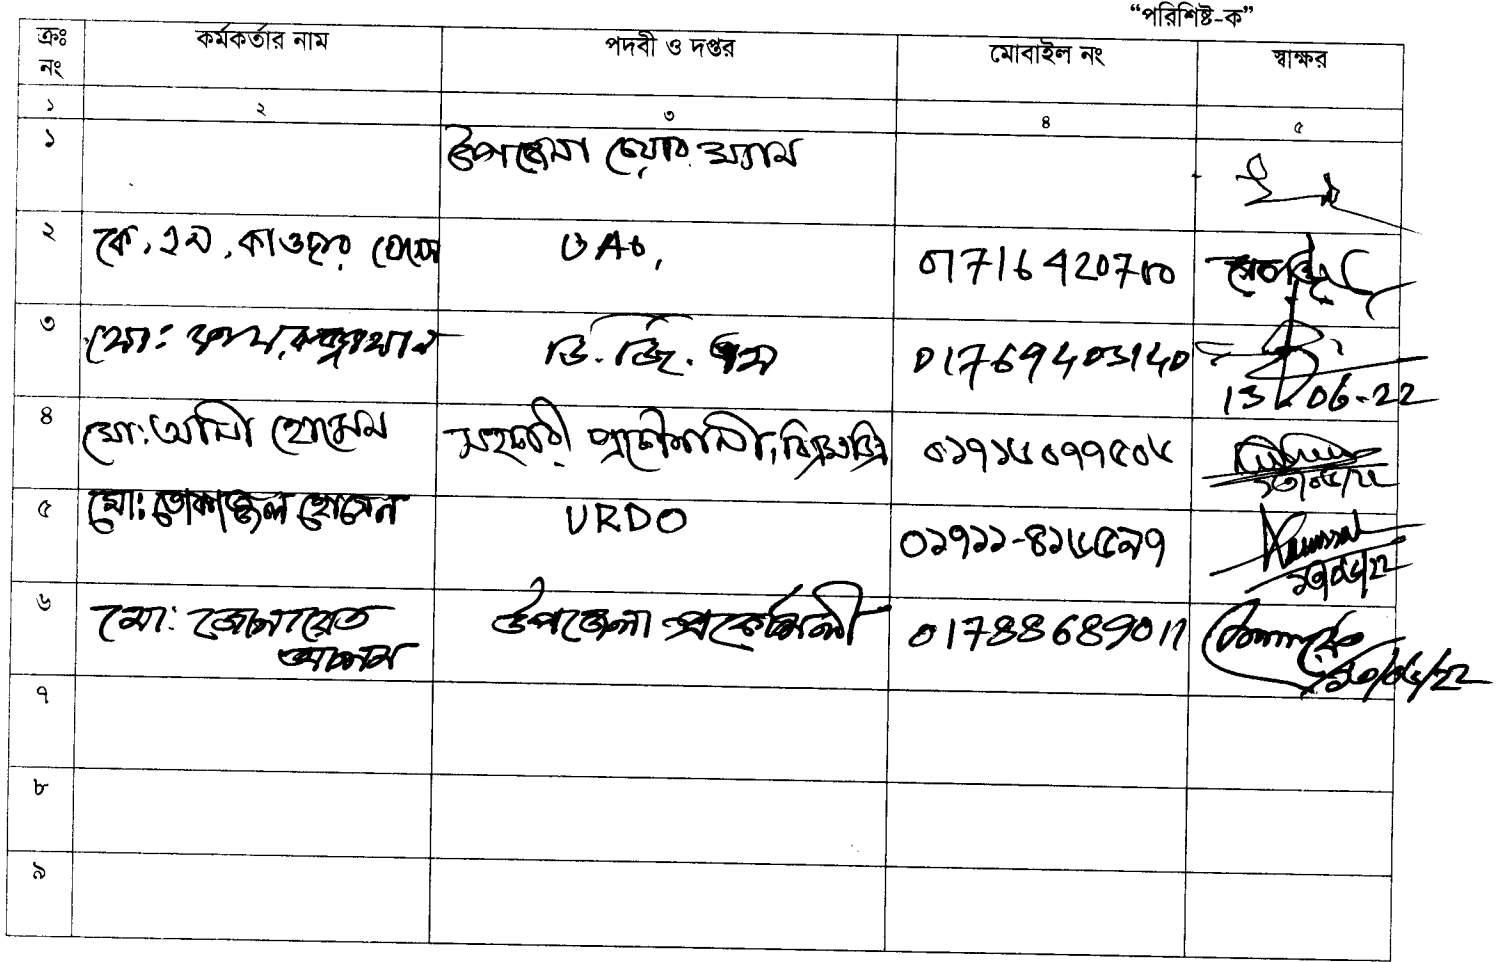 “পরিশিষ্ট-ক”
ক্রঃ নং কর্মকর্তার নাম পদবী ও দপ্তর মোবাইল নং স্বাক্ষর
১ ২ ৩ ৪ ৫
১ উপজেলা চেয়ারম্যান
২ কে, এম, কাওছার হোসেন UAO, 01716420710
৩ মো: ডি. জি. এম 01769403140
13 06-22
৪ মো: আলী হোসেন সহকারী প্রকৌশলী, ০১৭১৬০৭৭৫০৬
৫ মো: তোফাজ্জেল হোসেন URDO ০১৭১১-৪১৬৫৯৭
১৩/০৬/২২
৬ মো: উপজেলা প্রকৌশলী 01788689011
আলম ১৩/০৬/২২
৭
৮
৯